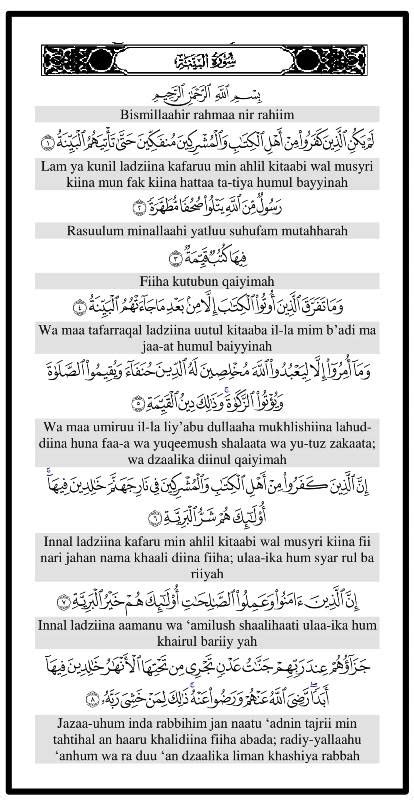 سُورَةُ الْبَيِّنَةِ
بِسْمِ اللَّهِ الرَّحْمَٰنِ الرَّحِيمِ
Bismillaahir rahmaa nir rahiim
لَمْ يَكُنِ الَّذِينَ كَفَرُوا مِنْ أَهْلِ الْكِتَابِ وَالْمُشْرِكِينَ مُنفَكِّينَ حَتَّىٰ تَأْتِيَهُمُ الْبَيِّنَةُ ١
Lam ya kunil ladziina kafaruu min ahlil kitaabi wal musyri
kiina mun fak kiina hattaa ta-tiya humul bayyinah
رَسُولٌ مِّنَ اللَّهِ يَتْلُوا صُحُفًا مُّطَهَّرَةً ٢
Rasuulum minallaahi yatluu suhufam mutahharah
فِيهَا كُتُبٌ قَيِّمَةٌ ٣
Fiiha kutubun qaiyimah
وَمَا تَفَرَّقَ الَّذِينَ أُوتُوا الْكِتَابَ إِلَّا مِن بَعْدِ مَا جَاءَتْهُمُ الْبَيِّنَةُ ٤
Wa maa tafarraqal ladziina uutul kitaaba il-la mim b’adi ma
jaa-at humul baiyyinah
وَمَا أُمِرُوا إِلَّا لِيَعْبُدُوا اللَّهَ مُخْلِصِينَ لَهُ الدِّينَ حُنَفَاءَ وَيُقِيمُوا الصَّلَاةَ
وَيُؤْتُوا الزَّكَاةَ ۚ وَذَٰلِكَ دِينُ الْقَيِّمَةِ ٥
Wa maa umiruu il-la liy’abu dullaaha mukhlishiina lahud-
diina huna faa-a wa yuqeemush shalaata wa yu-tuz zakaata;
wa dzaalika diinul qaiyimah
إِنَّ الَّذِينَ كَفَرُوا مِنْ أَهْلِ الْكِتَابِ وَالْمُشْرِكِينَ فِي نَارِ جَهَنَّمَ خَالِدِينَ فِيهَا ۚ
أُولَٰئِكَ هُمْ شَرُّ الْبَرِيَّةِ ٦
Innal ladziina kafaru min ahlil kitaabi wal musyri kiina fii
nari jahan nama khaali diina fiiha; ulaa-ika hum syar rul ba
riiyah
إِنَّ الَّذِينَ ءَامَنُوا وَعَمِلُوا الصَّالِحَاتِ أُولَٰئِكَ هُمْ خَيْرُ الْبَرِيَّةِ ٧
Innal ladziina aamanu wa ‘amilush shaalihaati ulaa-ika hum
khairul bariiy yah
جَزَاؤُهُمْ عِندَ رَبِّهِمْ جَنَّاتُ عَدْنٍ تَجْرِي مِن تَحْتِهَا الْأَنْهَارُ خَالِدِينَ فِيهَا
أَبَدًا ۖ رَّضِيَ اللَّهُ عَنْهُمْ وَرَضُوا عَنْهُ ۚ ذَٰلِكَ لِمَنْ خَشِيَ رَبَّهُ ٨
Jazaa-uhum inda rabbihim jan naatu ‘adnin tajrii min
tahtihal an haaru khalidiina fiiha abada; radiy-yallaahu
‘anhum wa ra duu ‘an dzaalika liman khashiya rabbah